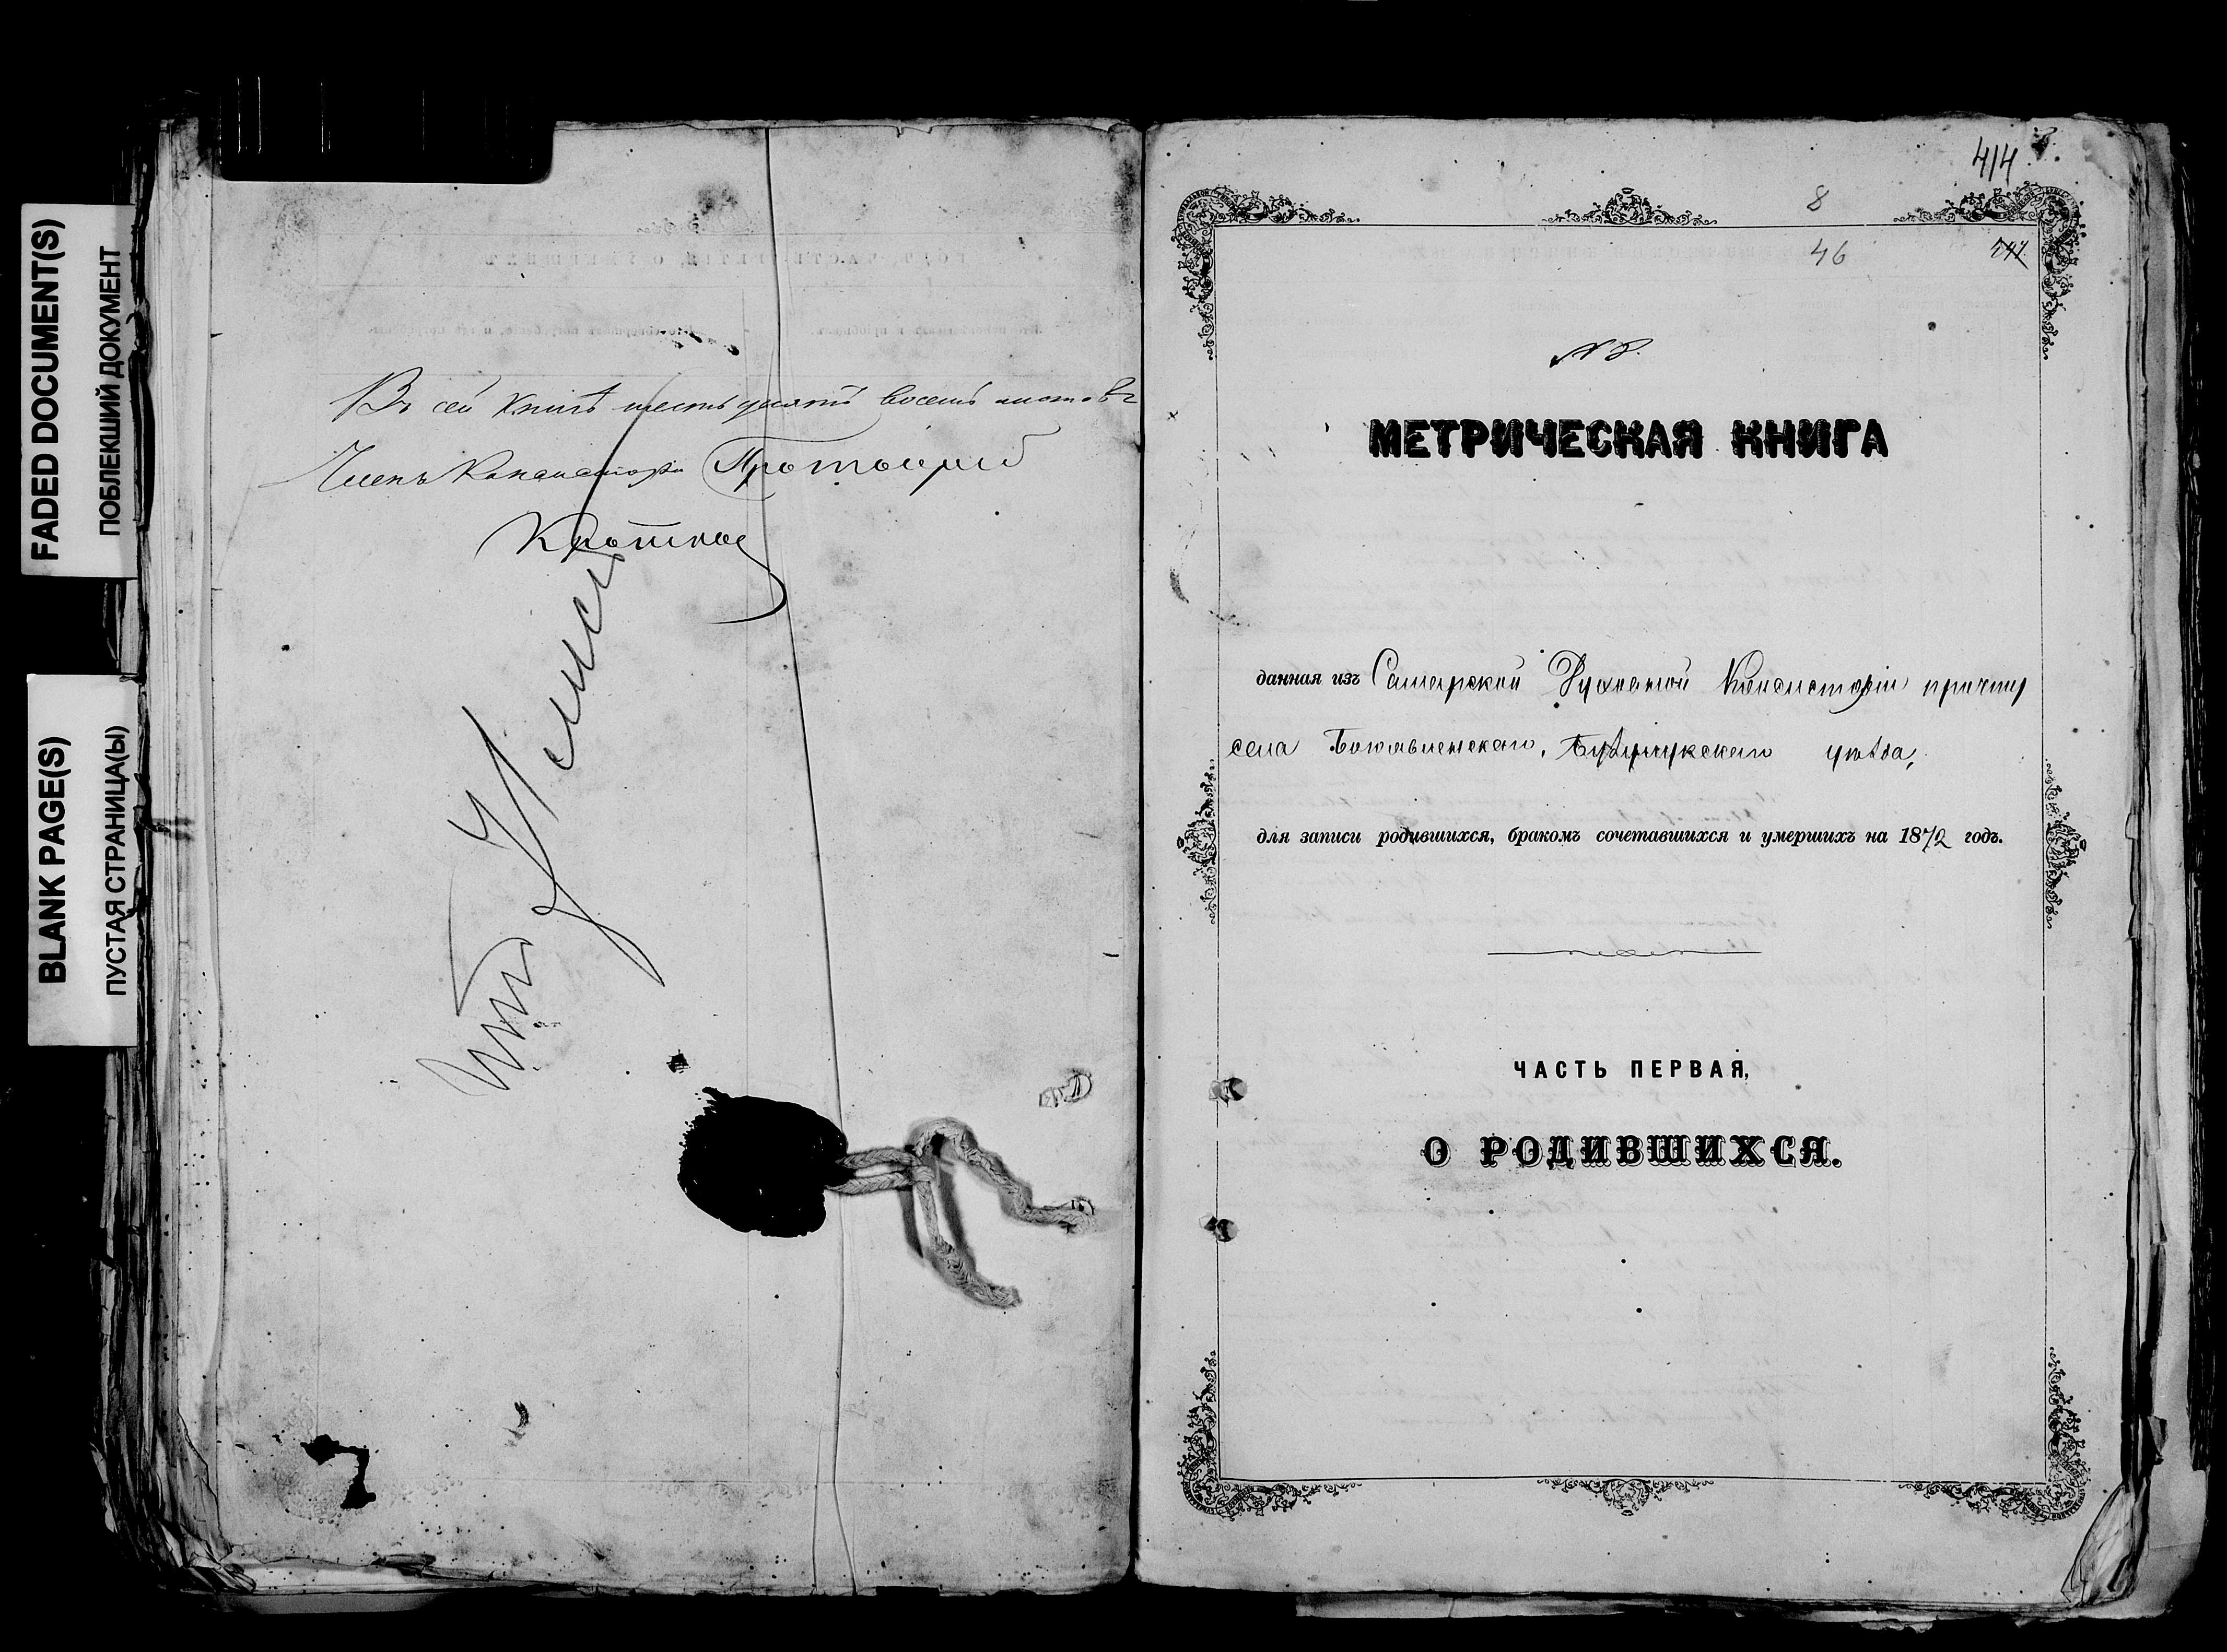 FADED DOCUMENT(S)
ПОБЛЕКШИЙ ДОКУМЕНТ
BLANK PAGE(S)
ПУСТАЯ СТРАНИЦА(Ы)
Въ сей книгѣ шестьдесятъ восемь листовъ
Членъ Консисторіи Протоіерей
414
8
46
№ 8.
МЕТРИЧЕСКАЯ КНИГА
данная изъ Самарской Духовной Консисторіи причту
села Богоявленскаго, Бузулукскаго уѣзда,
для записи родившихся, бракомъ сочетавшихся и умершихъ на 1872 годъ.
ЧАСТЬ ПЕРВАЯ,
О РОДИВШИХСЯ.